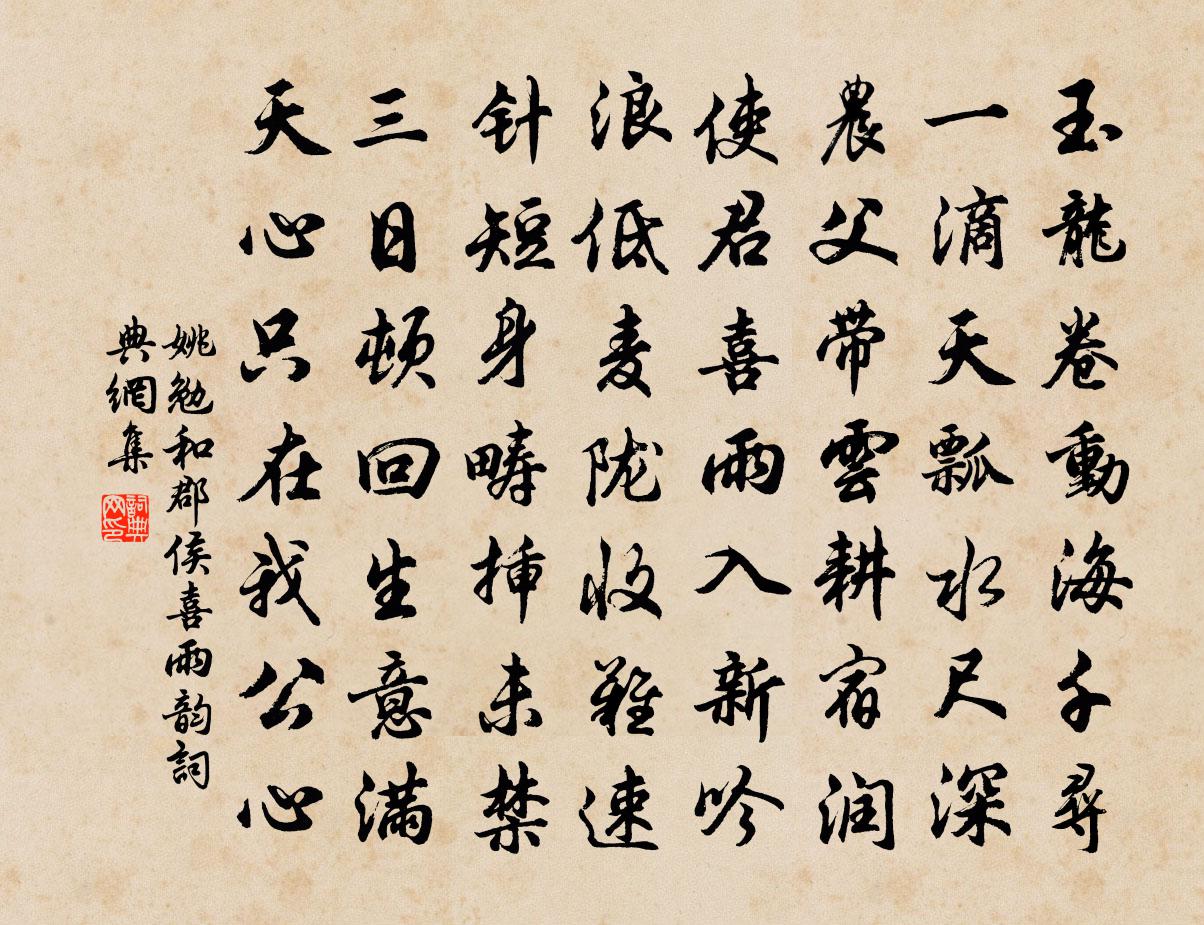 玉龍卷動海千尋
一滴天瓢水尺深
農父帶雲耕宿润
使君喜雨入新吟
浪低麦陇收難速
针短身疇挿未禁
三日頓回生意滿
天心只在我公心
姚勉和郡侯喜雨韵詞
典網集
詞典网印